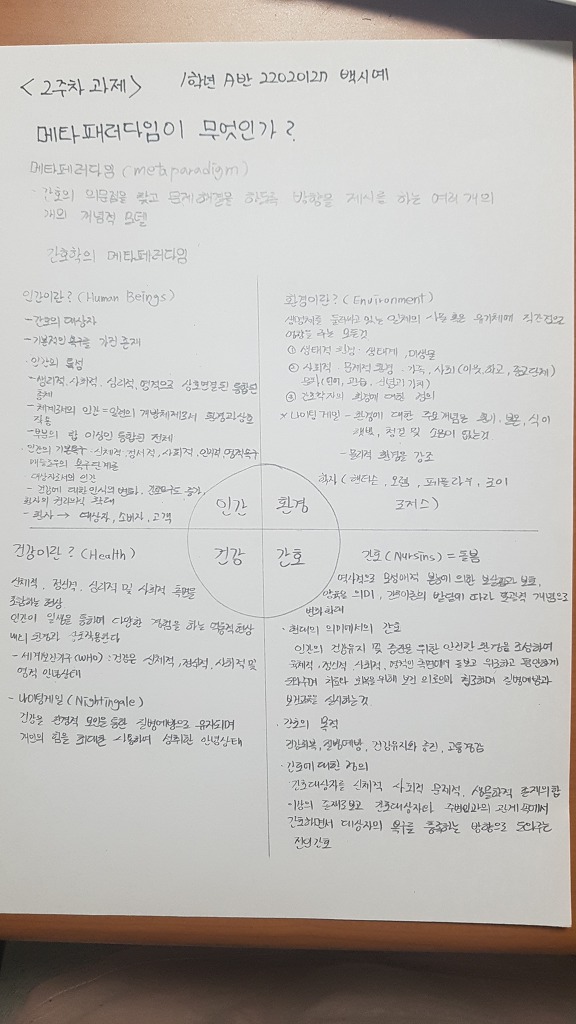 <2주차 과제> 1학년 A반 2202012n 백시예
메타패러다임이 무엇인가?
메타페러다임 (metaparadigm)
· 간호의 의문점을 찾고 문제해결을 하도록 방향을 제시를 하는 여러 개의
개의 개념적 모델
간호학의 메타페러다임
인간이란? (Human Beings)
- 간호의 대상자
- 기본적인 욕구를 가진 존재
· 인간의 특성
- 생리적, 사회적, 심리적, 영적으로 상호연결된 통합된
총체
- 체계로서의 인간 = 일련의 개방체계로서 환경과 상호
작용
- 부분의 합 이상인 통합된 전체
· 인간의 기본욕구 · 신체적, 정서적, 사회적, 인지적 영적욕구
매슬로우의 욕구단계론
대상자로서의 인간
- 건강에 대한 인식의 변화, 건강요구도 증가,
환자의 권리의식 확대
- 환자 → 대상자, 소비자, 고객
환경이란? (Environment)
생명체를 둘러싸고 있는 일체의 사물 혹은 유기체에 직간접으로
영향을 주는 모든것
① 생태적 환경 : 생태계, 미생물
② 사회적 · 문제적 환경 - 가족, 사회(이웃, 학교, 종교단체)
문화(언어, 관습, 신념가치)
③ 간호학자의 환경에 대한 정의
* 나이팅게일 - 환경에 대한 주요개념은 환기, 보온, 식이
햇빛, 청결 및 소음이 없는것
- 물리적 환경을 강조
학자 (핸더슨, 오렘, 페플라우, 로이
로저스)
인간 환경
건강 간호
건강이란? (Health)
신체적, 정신적, 심리적 및 사회적 측면을
포함하는 현상
인간이 일생을 통하여 다양한 경험을 하는 역동적현상
내외 환경과 상호작용한다
- 세계보건기구(WHO) : 건강은 신체적, 정신적, 사회적 및
영적 안녕상태
- 나이팅게일 (Nightingale)
건강을 환경적 요인을 통한 질병예방으로 유지되며
개인의 힘을 최대한 사용하여 성취한 안녕상태
간호 (Nursins) = 돌봄
역사적으로 모성애적 본능에 의한 보살핌과 보호,
양육을 의미, 간호이론의 발달에 따라 포괄적 개념으로
변화하여
· 현대의 의미에서의 간호
인간의 건강유지 및 증진을 위한 안전한 환경을 조성하여
육체적, 정신적 사회적, 영적인 측면에서 돌보고 위로하고 편안하게
도와주며 치료와 회복을 위해 보건 의료인과 협조하며 질병예방과
보건교육을 실시하는것
· 간호의 목적
건강회복, 질병예방, 건강유지와 증진, 고통경감
· 간호에 대한 정의
간호대상자를 신체적 사회적 문제적, 생물학적 존재의합
이상의 존재로보고 간호대상자와 수행인과의 관계 속에서
간호하면서 대상자의 욕구를 충족하는 방향으로 도와주는
전인간호